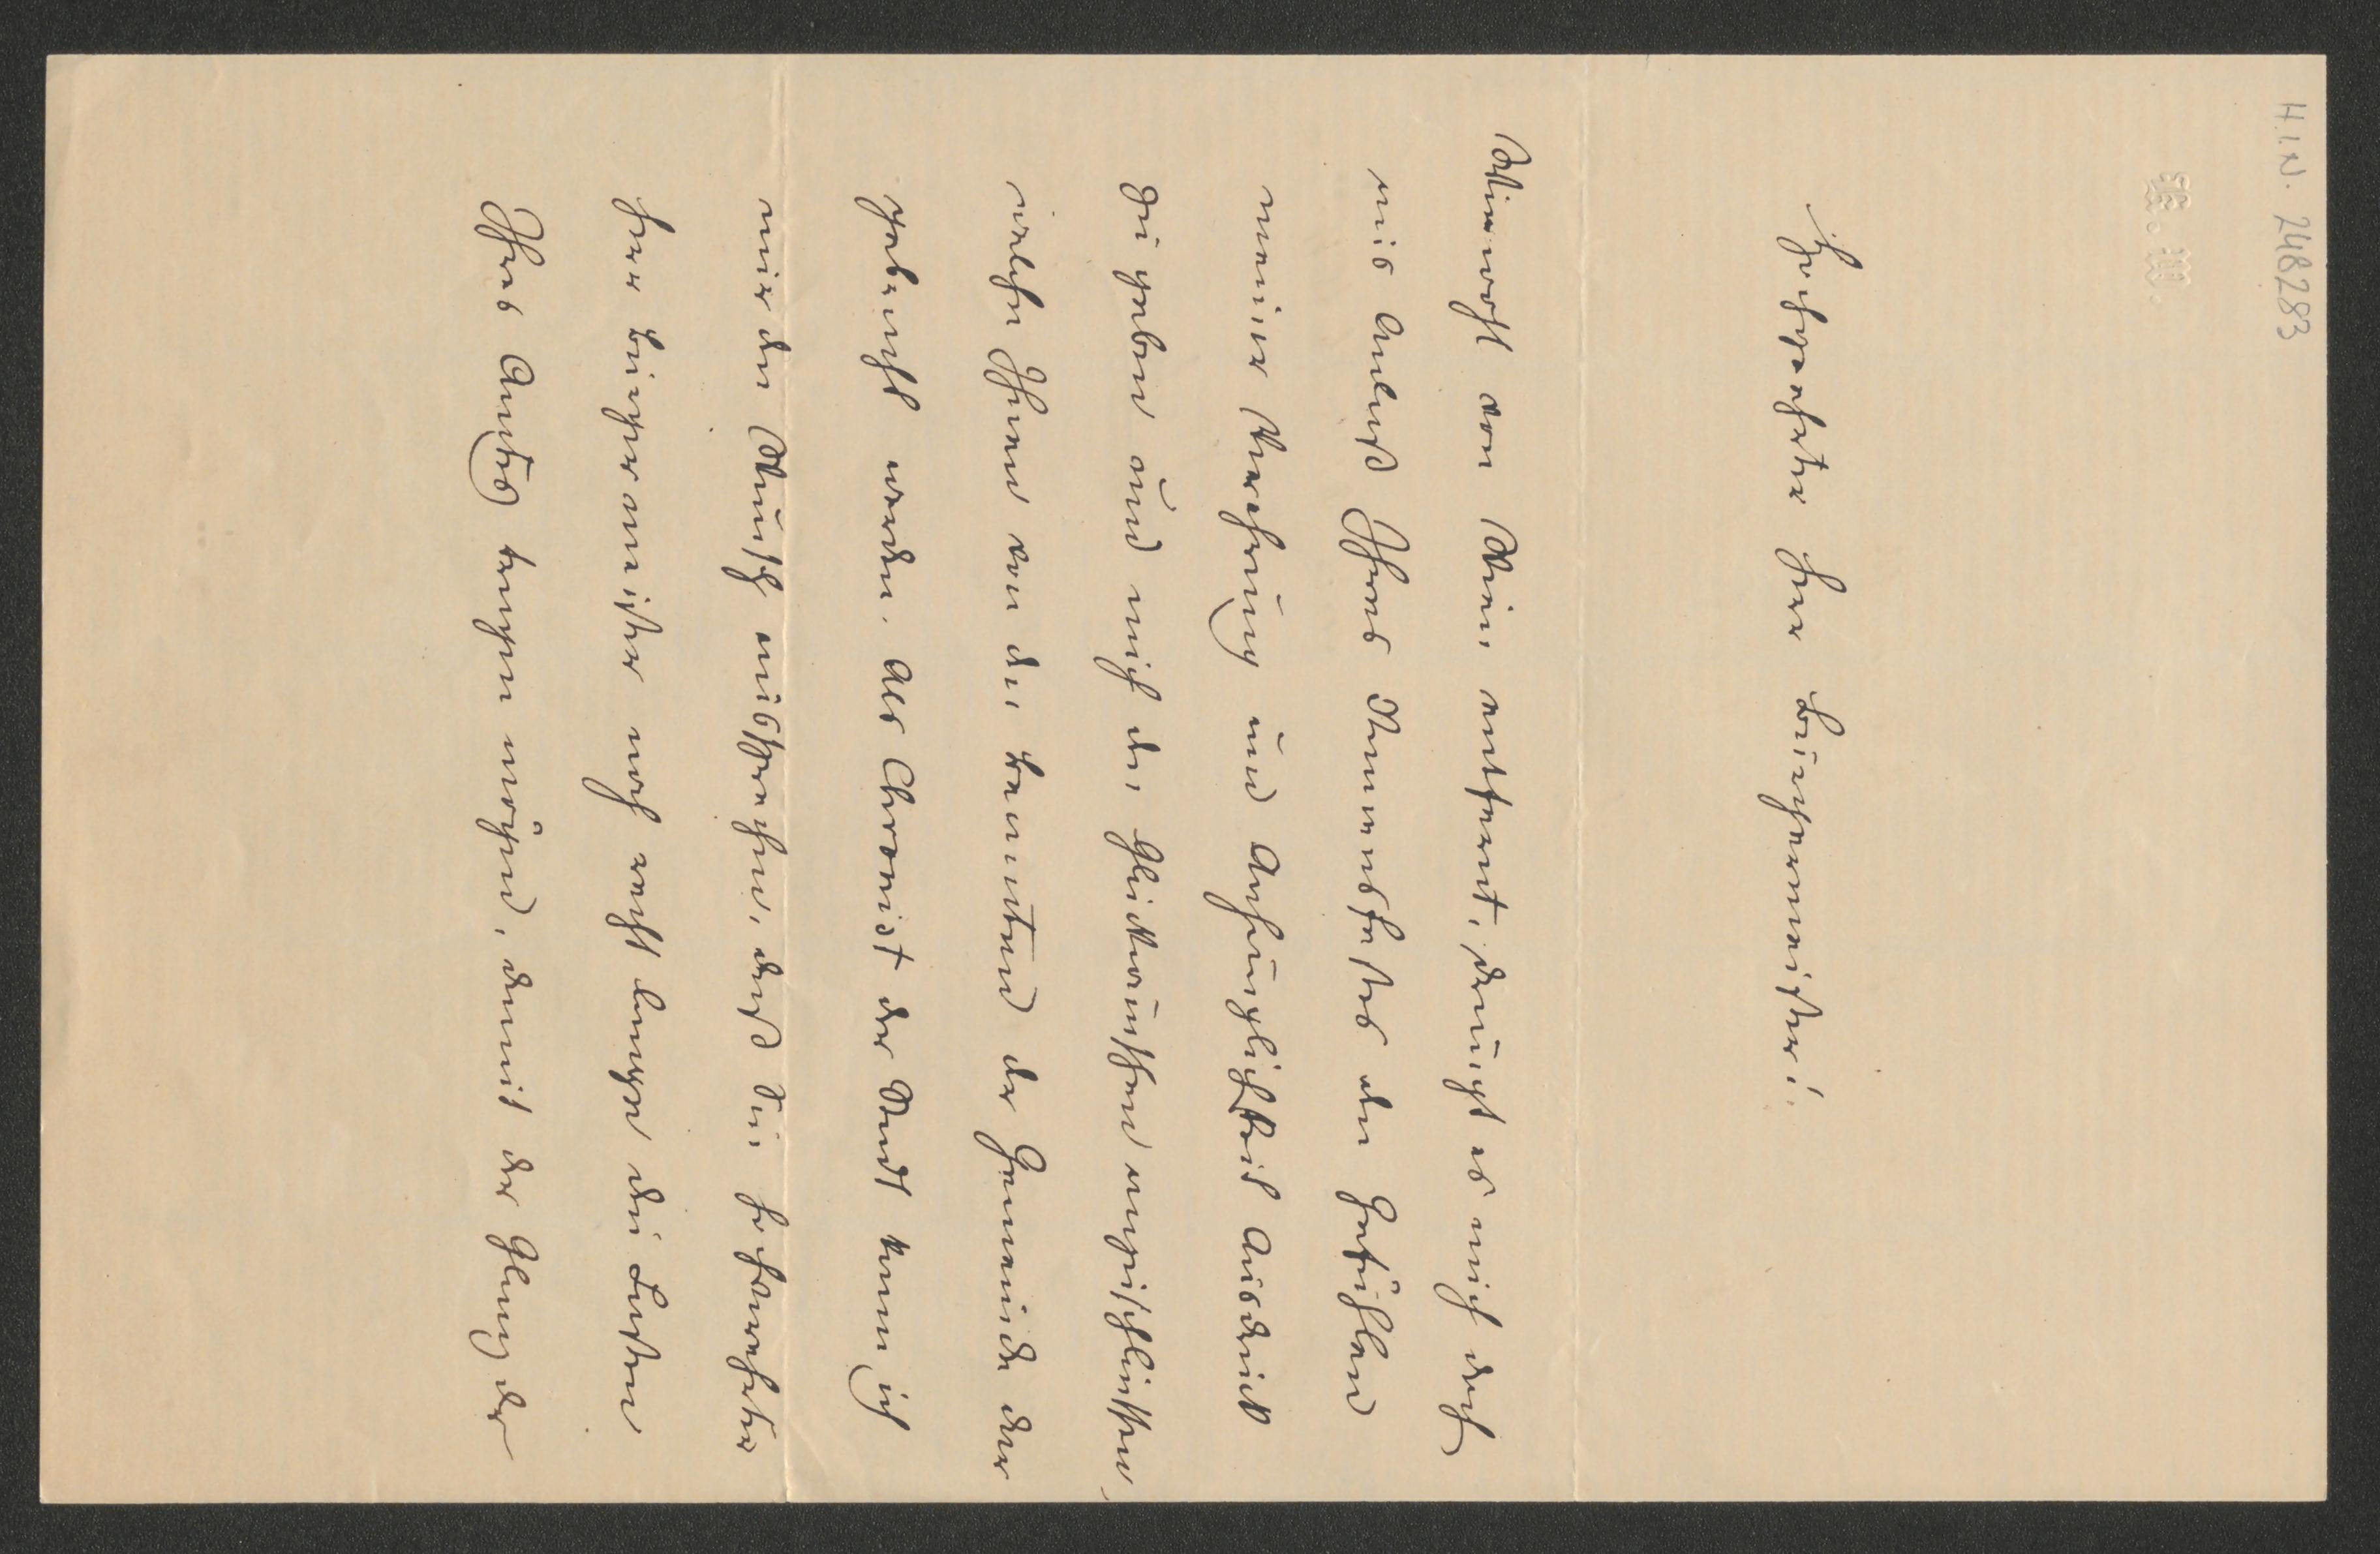 H.I.N. 248283
Hochgeehrter Herr Bürgermeister!
Wiewohl von Wien entfernt, drängt es mich doch
aus Anlaß Ihres Namensfestes den Gefühlen
meiner Verehrung und Anhänglichkeit Ausdruck
zu geben und mich den Glückwünschen anzuschließen,
welche Ihnen von den Beamten der Gemeinde dar
gebracht werden. Als Chronist der Stadt kann ich
nur den Wunsch aussprechen, daß Sie hochverehrter
Herr Bürgermeister noch recht lange die Lasten
Ihres Amtes tragen mögen, damit der Glanz der